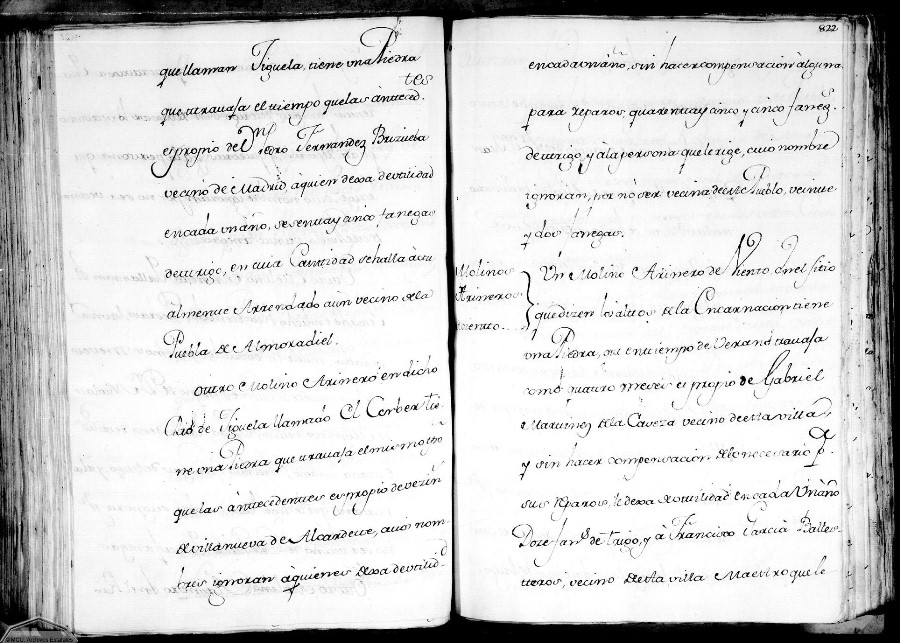 que llaman Jiguela, tiene una Piedra
que travaja el tiempo que las antecedtes
es propio de Dn Pedro Fernandez Brizuela
vecino de Madrid, a quien dexa de utilidad
en cada un año, sesenta y cinco fanegas
de trigo, en cuia Cantidad se halla actu
almente Arrendado a un vecino de la
Puebla de Almoradiel.
Outro Molino Arinero en dicho
Rio de Jiguela llamado El Cerbero tie
ne una Piedra que travaja el mismo tpo
que las antecedentes es propio de vezin
de villanueva de Alcardete, cuios nom
bres ignoran a quienes dexa de utilid
822
en cada un año, sin hacer compensacion alguna
para reparos, quarenta y cinco fanegs
de trigo, y a la persona que le rige, cuio nombre
ignoran, por no ser vecina de este Pueblo, veinte
y dos fanegas.
Molinos
Arineros
viento
Un Molino Arinero de Viento, en el sitio
que dizen los altos de la Encarnacion tiene
una Piedra, que en tiempo de Verano travaja
como quatro meses es propio de Gabriel
Martinez de la Caveza vecino de esta villa
y sin hacer compensacion de lo necesario p.
sus Reparos, le dexa de utilidad en cada Un año
Doze fans de trigo, y a Francisco Garcia Balles
tteros, vecino de esta villa Maestro que le
©MCU. Archivos Estatales